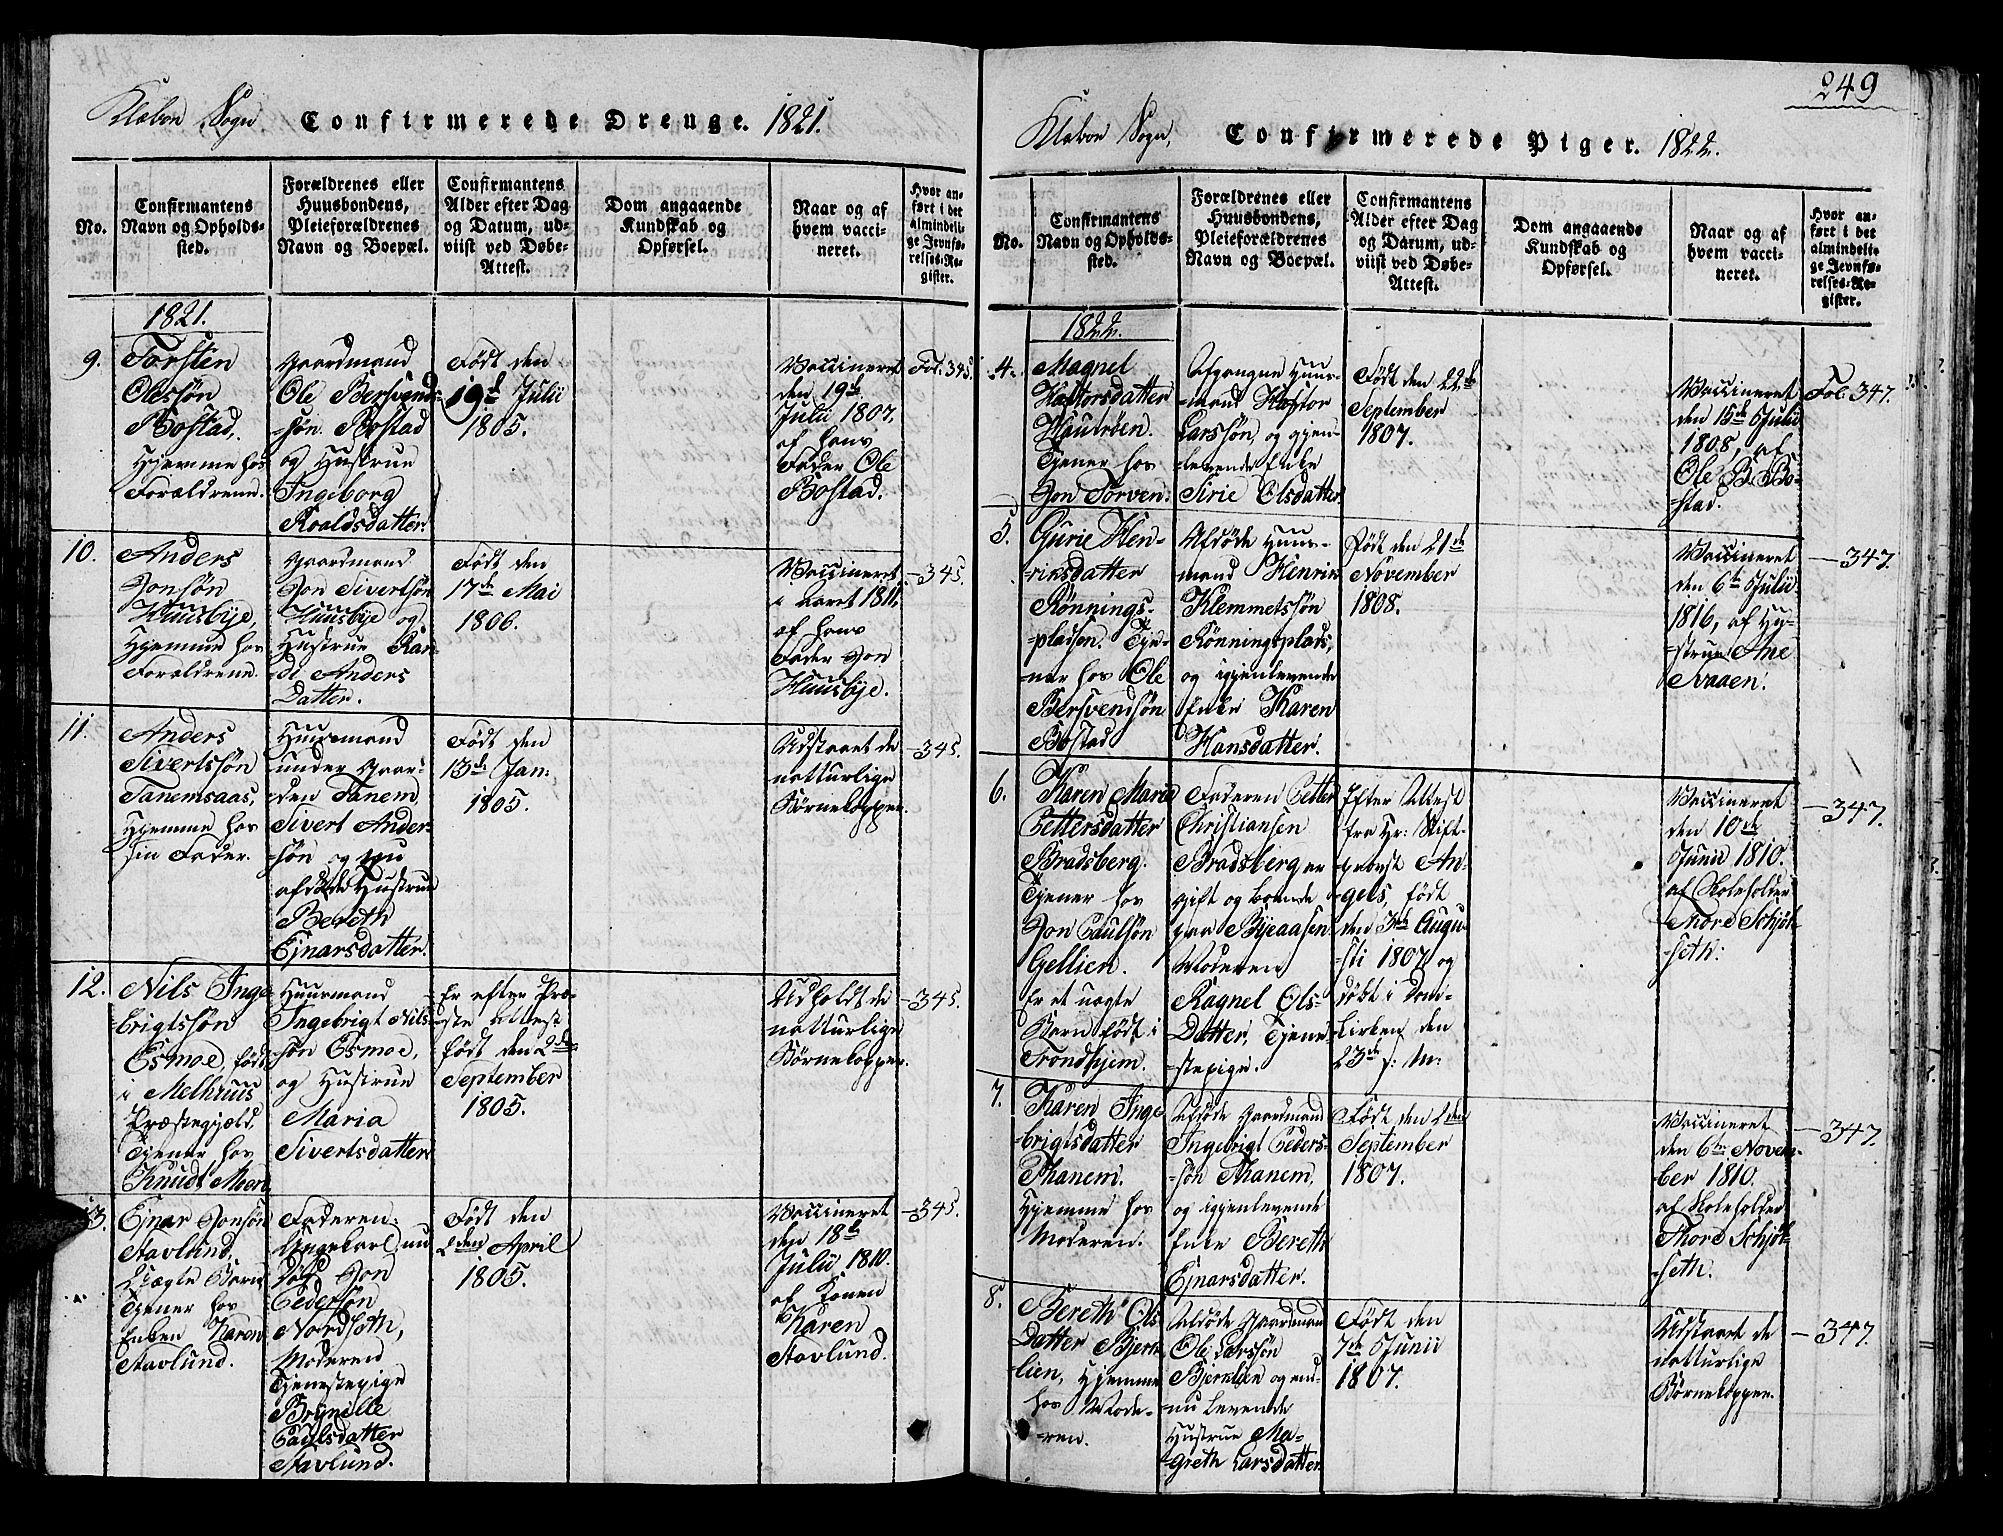 Klæboe Sogn. Confirmerede Drenge. 1821.
No.
Confirmantens
Navn og Opholds-
sted.
Forældrenes eller
Huusbondens,
Pleieforældrenes
Navn og Boepæl.
Confirmantens
Alder efter Dag
og Datum, ud-
viist ved Døbe-
Attest.
Dom angaaende
Kundskab og
Opførsel.
Naar og af
hvem vacci-
neret.
Hvor an-
ført i det
almindeli-
ge Jevnfø-
relses-Re-
gister.
1821.
9.
Torsten
Olessøn
Bostad,
Hjemme hos
Forældrene.
Gaardmand
Ole Bersvend-
søn Bostad
og Hustrue
Ingeborg
Roaldsdatter.
Født den
19d Julii
1805.
Vaccineret
den 19d
Julii 1807,
af hans
Fader Ole
Bostad.
Fol. 345.
10.
Anders
Jonsøn
Huusbye,
Hjemme hos
Forældrene.
Gaardmand
Jon Sivertsøn
Huusbye og
Hustrue Ran-
di Anders
Datter.
Født den
17de Mai
1806.
Vaccineret
i Aaret 1811,
af hans
Fader Jon
Huusbye.
— 345.
11.
Anders
Sivertssøn
Tanemsaas,
Hjemme hos
sin Fader.
Huusmand
under Gaar-
den Tanem
Sivert Ander-
søn og nu
afdøde Hustrue
Bereth
Ejnarsdatter.
Født den
13de Jan:
1805.
Udstaaet de
natturlige
Børnekopper.
— 345.
12.
Nils Inge
brigtssøn
Esmoe, født
i Melhuus
Præstegjeld,
Tjener hos
Knud Moen.
Huusmand
Ingebrigt Nils-
søn Esmoe,
og Hustrue
Maria
Sivertsdatter
Er efter Præ-
ste Attest
født den 2den
September
1805.
Udholdt de
natturlige
Børnekopper.
— 345.
13.
Ejnar Jonsøn
Stavlund.
Uægte Barn
Tjener hos
Enken Karen
Stavlund.
Faderen
Ungekarl, nu
død Jon
Pedersøn
Nordseth,
Moderen
Tjenestepige
Brynelle
Paulsdatter
Stavlund.
Født den
2den April
1805.
Vaccineret
den 18d
Julii 1810.
af Konen
Karen
Stavlund.
— 345.
249
Klæboe Sogn, Confirmerede Piger. 1822.
No.
Confirmantens
Navn og Opholds-
sted.
Forældrenes eller
Huusbondens,
Pleieforældrenes
Navn og Boepæl.
Confirmantens
Alder efter Dag
og Datum, ud-
viist ved Døbe-
Attest.
Dom angaaende
Kundskab og
Opførsel.
Naar og af
hvem vacci-
neret.
Hvor an-
ført i det
almindeli-
ge Jevnfø-
relses-Re-
gister.
1822.
4.
Magnel
Hattorsdatter
Tjener hos
Jon Torven.
Afgangne Huus-
mand
Larssøn, og gjen-
levende Enke
Sirie Olsdatter
Født den 22de
September
1807.
Vaccineret
den 15de Julii
1808, af
Ole B. Bo-
stad.
Fol. 347.
5.
Gurie Hen-
riksdatter
Rønnings-
pladsen. Tje-
ner hos Ole
Bersvendsøn
Bostad
Afdøde Huus-
mand Henrik
Klemmetssøn
Rønningsplads,
og igjenlevende
Enke Karen
Hansdatter.
Født den 21de
November
1808.
Vaccineret
den 6te Julii
1816, af Hu-
strue Ane
Kraaen.
— 347.
6.
Karen Marie
Pettersdatter
Bradsberg.
Tjener hos
Jon Paulsøn
Gellien.
Er et uægte
Barn født i
Trondhjem.
Faderen Petter
Christiansen
Bradsberg er
gift og boende
paa Byeaasen
Moderen
Ragnel Ols-
Datter, Tjene-
stepige.
Efter Attest
fra Hr: Stift-
provst An-
gels, født
den 3de Augu-
sti 1807 og
døbt i Dom-
kirken den
23de s: M:
Vaccineret
den 10de
Junii 1810.
af Skoleholder
Thore Schjøl-
seth.
— 347.
7.
Karen Inge
brigtsdatter
Thanem.
Hjemme hos
Moderen.
Afdøde Gaardmand
Ingebrigt Peders-
søn Thanem,
og igjenlevende
Enke Bereth
Ejnarsdatter.
Født den 2den
September
1807.
Vaccineret
den 6te Novem-
ber 1810.
af Skoleholder
Thore Schjøl-
seth.
— 347.
8.
Bereth Ols
Datter Bjerk-
lien, Hjemme
hos Mode-
ren.
Afdøde Gaardmand
Ole Larssøn
Bjerklien og end-
nu levende
Hustrue Ma-
greth Larsdatter.
Født den
7de Junii
1807.
Udstaaet de
natturlige
Børnekopper.
— 347.